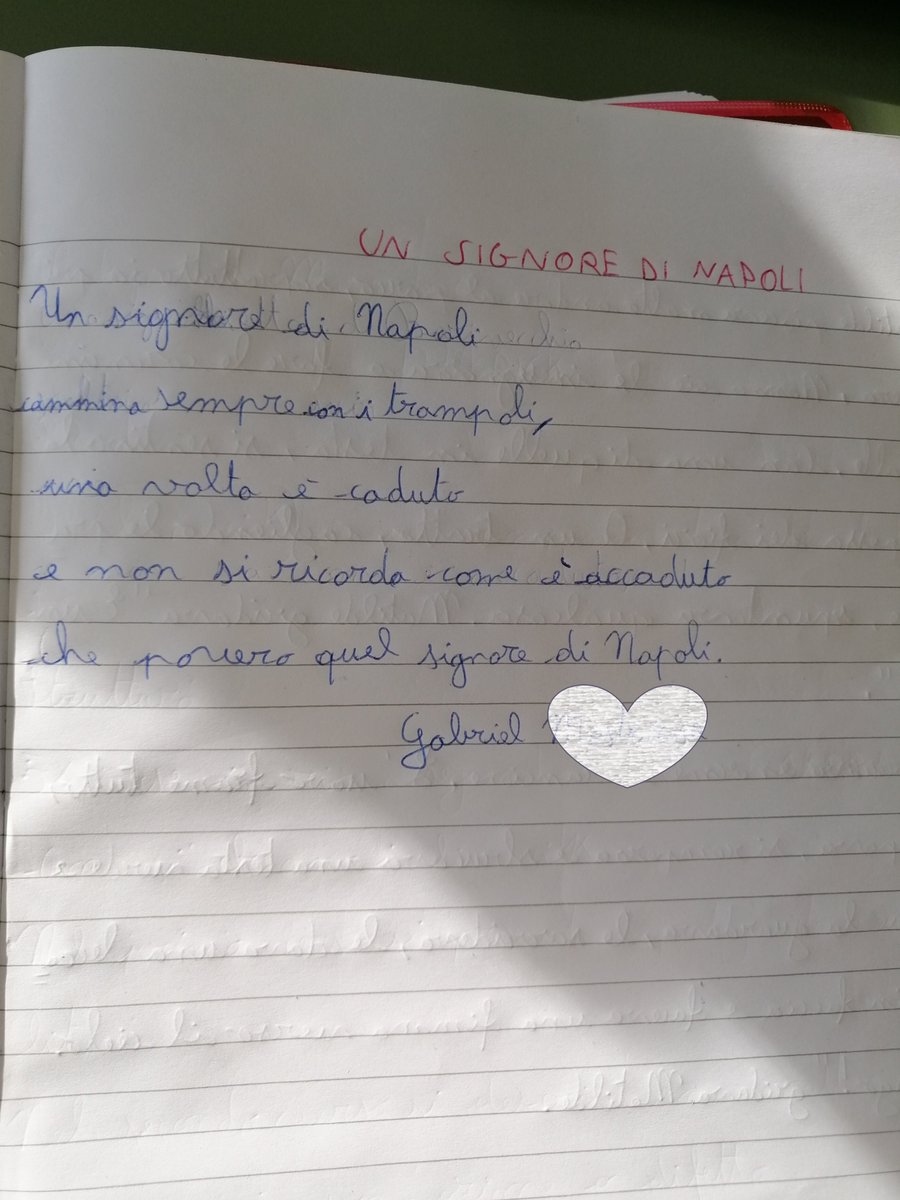 UN SIGNORE DI NAPOLI
Un signore di Napoli
cammina sempre con i trampoli,
una volta è caduto
e non si ricorda come è accaduto
che povero quel signore di Napoli.
Gabriel